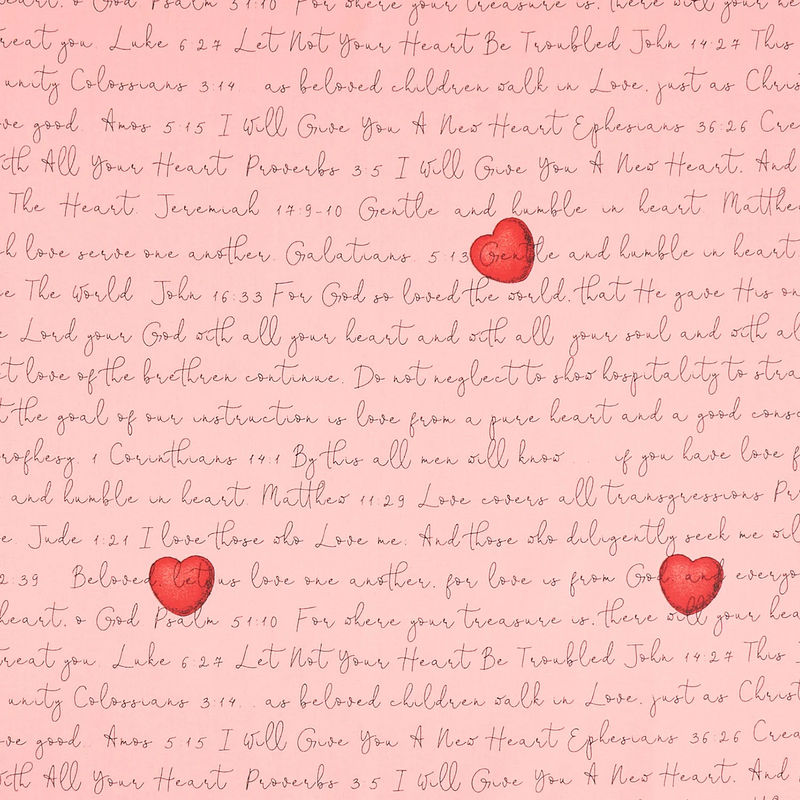 heart, o God Psalm 51:10 For where your treasure is, there will your hea
reat you. Luke 6:27 Let Not Your Heart Be Troubled John 14:27 This
unity Colossians 3:14.. as beloved children walk in Love, just as Chris
ve good. Amos 5:15 I Will Give You A New Heart Ephesians 36:26 Cre
ith All Your Heart Proverbs 3:5 I Will Give You A New Heart, And
The Heart. Jeremiah 17:9-10 Gentle and humble in heart. Matthe
h love serve one another. Galatians. 5:13 Gentle and humble in heart.
e The World John 16:33 For God so loved the world, that He gave His on
e Lord your God with all your heart and with all your soul and with al
t love of the brethren continue. Do not neglect to show hospitality to stra
t the goal of our instruction is love from a pure heart and a good consc
rophesy. 1 Corinthians 14:1 By this all men will know . . . if you have love f
and humble in heart. Matthew 11:29 Love covers all transgressions Pr
e. Jude 1:21 I love those who Love me; And those who diligently seek me wil
2:39 Beloved, let us love one another, for love is from God, and everyo
heart, o God Psalm 51:10 For where your treasure is, there will your hea
reat you. Luke 6:27 Let Not Your Heart Be Troubled John 14:27 This
unity Colossians 3:14.. as beloved children walk in Love, just as Christ
ve good. Amos 5:15 I Will Give You A New Heart Ephesians 36:26 Crea
ith All Your Heart Proverbs 3:5 I Will Give You A New Heart, And